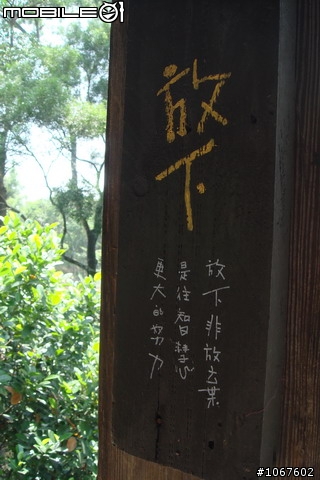 MOBILE01
放下
放下非放棄
是往智慧
更大的努力
#1067602